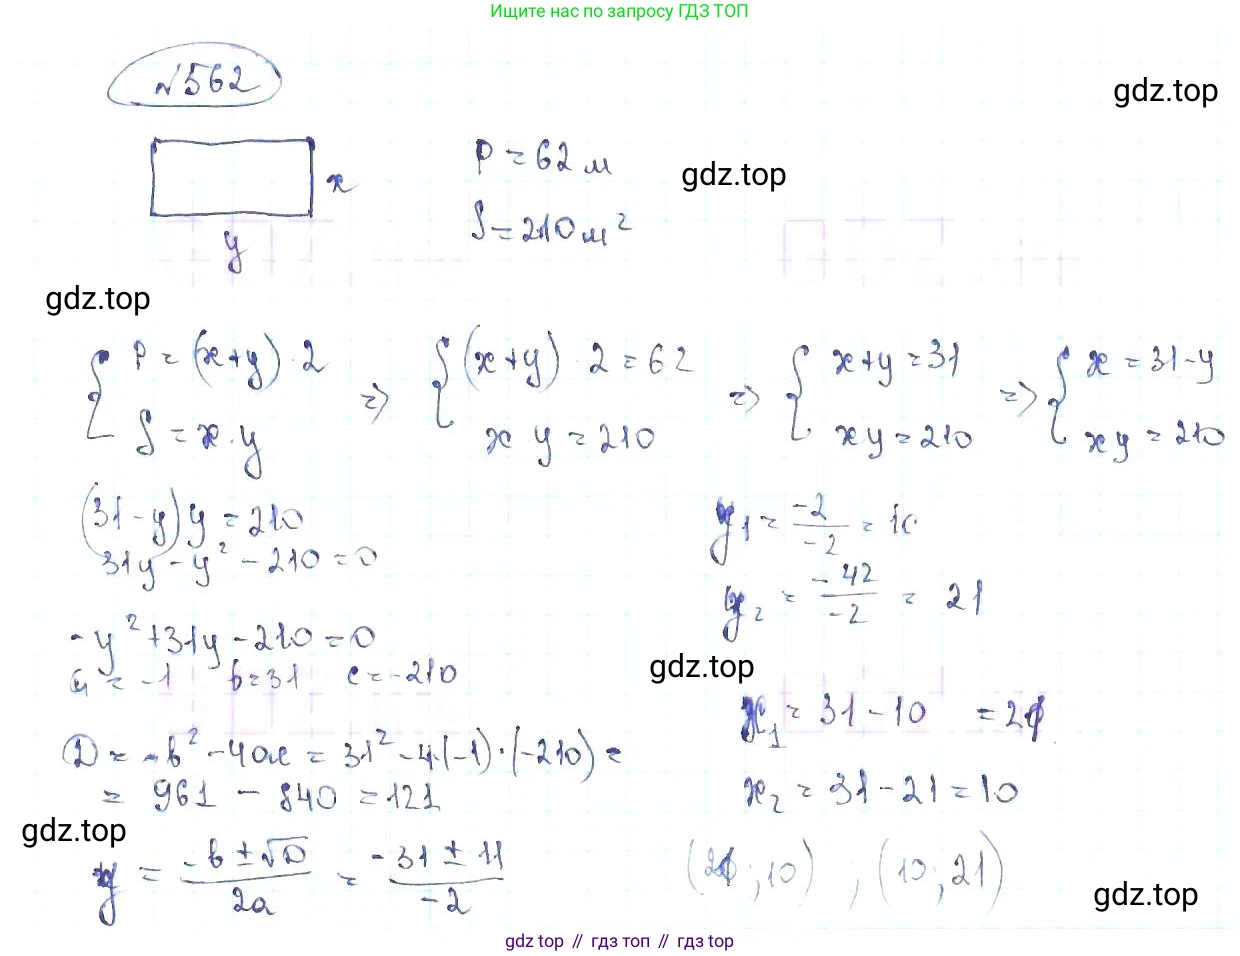 Ищите нас по запросу ГДЗ ТОП
№562
gdz.top
P = 62 м
gdz.top
x
S = 210 м²
y
gdz.top
{ P = (x+y)·2 => { (x+y)·2 = 62 => { x+y = 31 => { x = 31-y
S = x·y xy = 210 xy = 210 xy = 210
(31-y)y = 210
31y - y² - 210 = 0
-y² + 31y - 210 = 0
a = -1 b = 31 c = -210
D = b² - 4ac = 31² - 4·(-1)·(-210) =
= 961 - 840 = 121
gdz.top
y = (-b ± √D)/2a = (-31 ± 11)/-2
y₁ = -2/-2 = 10
y₂ = -42/-2 = 21
gdz.top
x₁ = 31 - 10 = 21
x₂ = 31 - 21 = 10
(21; 10) ; (10; 21)
gdz.top
gdz top // гдз топ // gdz top